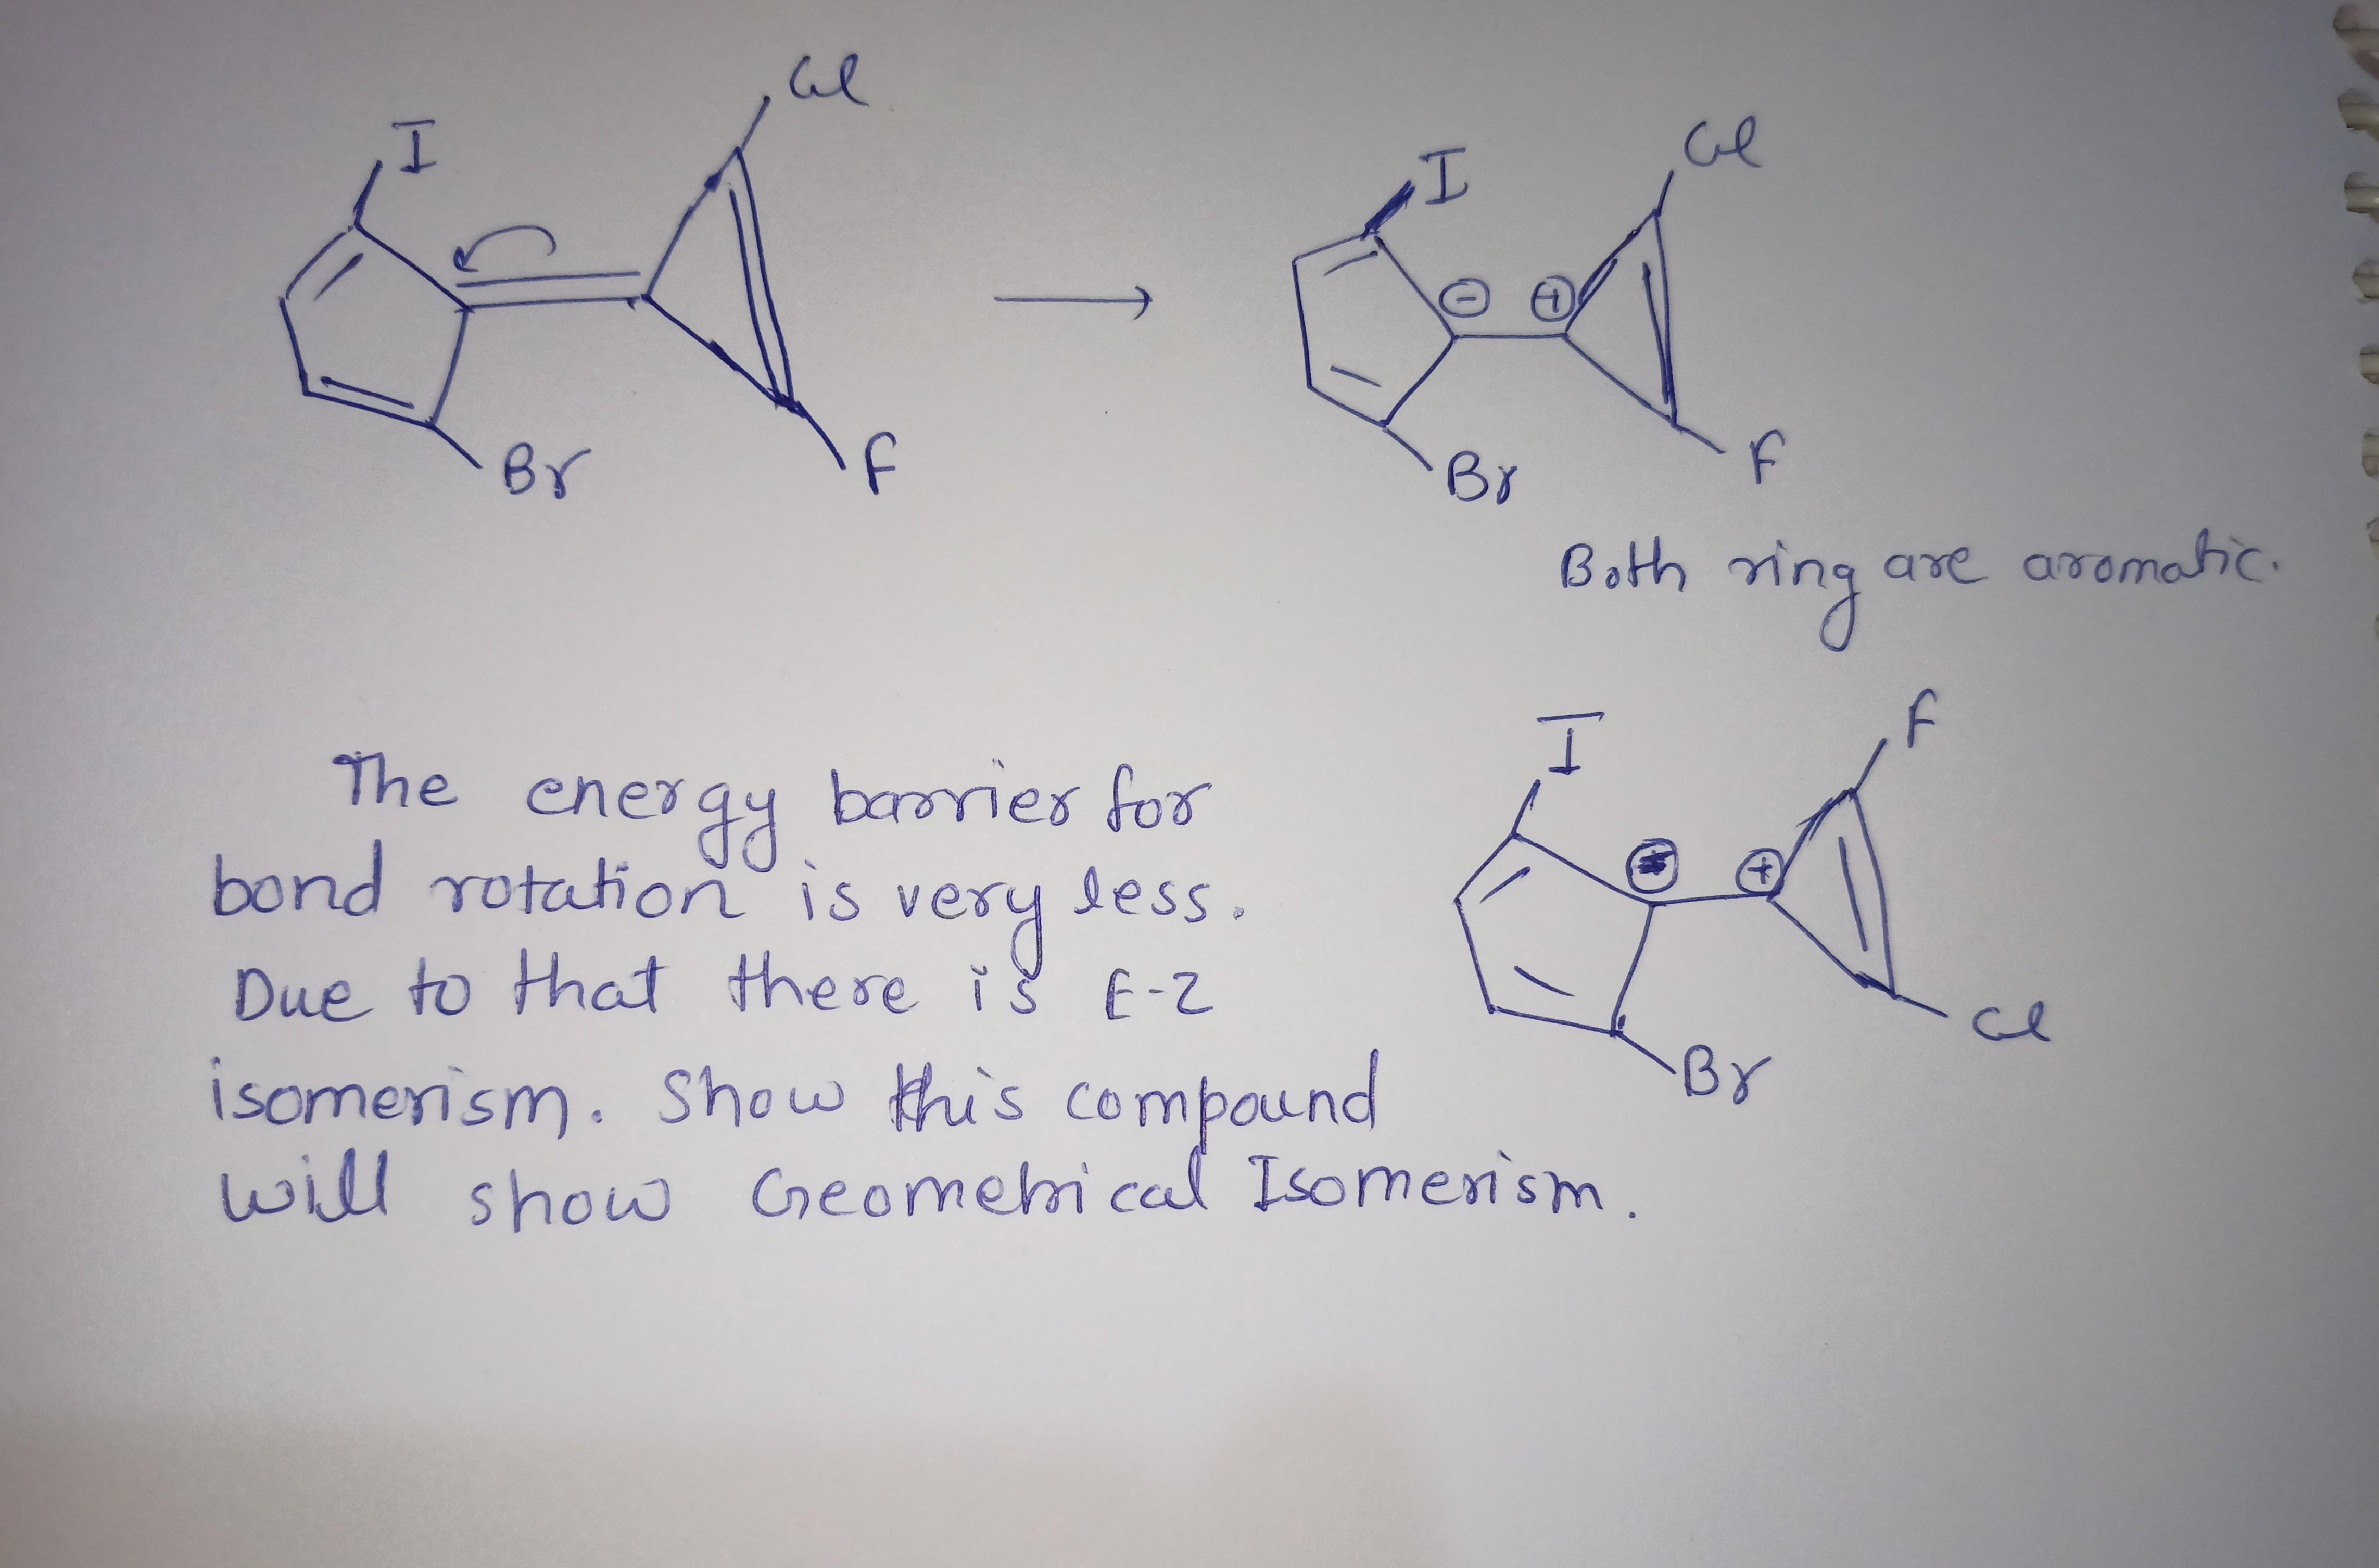 I
Cl
Br
F
I
Cl
⊖ ⊕
Br
F
Both ring are aromatic.
The energy barrier for
bond rotation is very less.
Due to that there is E-Z
isomerism. Show this compound
will show Geometrical Isomerism.
I
F
⊕
Cl
Br